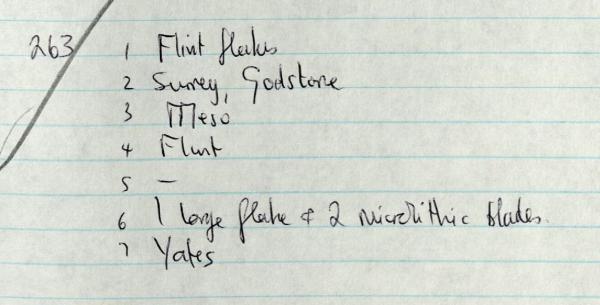 263 1 Flint flakes
2 Surrey, Godstone
3 Meso
4 Flint
5 —
6 1 large flake & 2 microlithic blades.
7 Yates